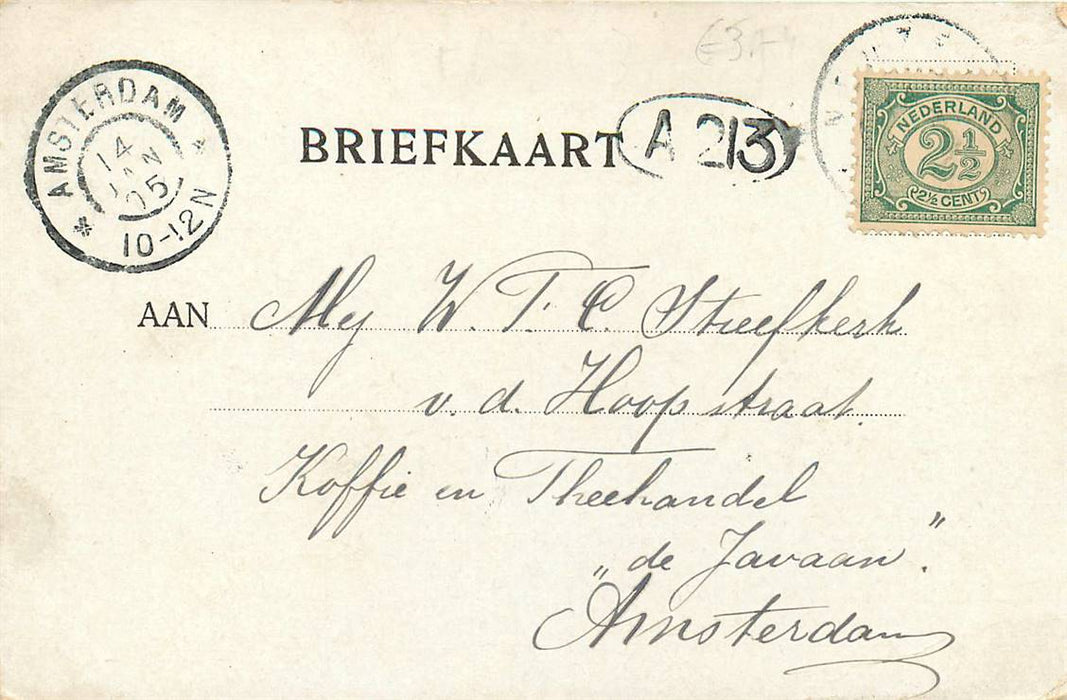 AMSTERDAM
14
JAN
05
10-12N
BRIEFKAART
A 213
NEDERLAND
2 1/2
2½ CENT
AAN Mej W. T. C. Streefkerk
v. d. Hoopstraat.
Koffie en Theehandel
„de Javaan".
Amsterdam